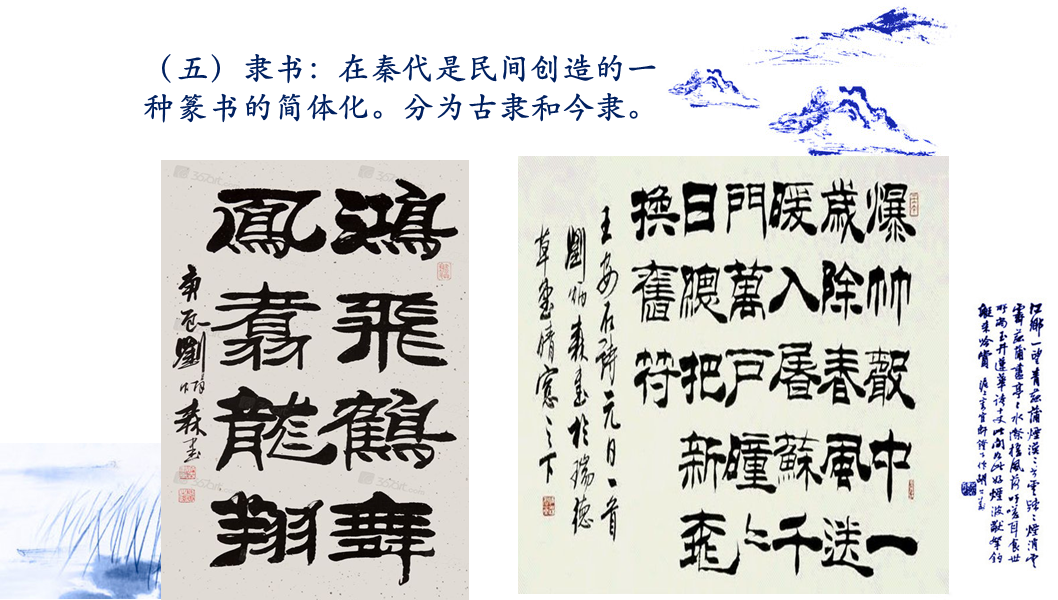 （五）隶书：在秦代是民间创造的一
种篆书的简体化。分为古隶和今隶。
鴻飛鶴舞
鳳翥龍翔
庚辰劉炳森書
爆竹聲中一
歲除春風送
暖入屠蘇千
門萬戶曈々
日總把新桃
換舊符
王安石詩元日一首
劉炳森書於瑞德
草堂晴窗之下